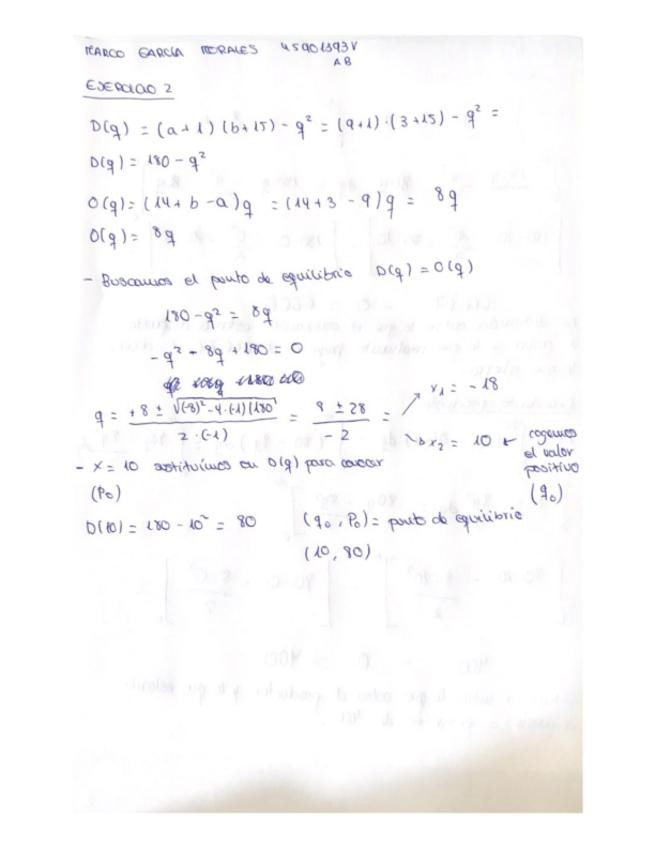 MARCO GARCÍA MORALES 45901393V
AB
EJERCICIO 2
D(q) = (a+1)(b+15) - q² = (9+1)·(3+15) - q² =
D(q) = 180 - q²
O(q) = (14+b-a)q = (14+3-9)q = 8q
O(q) = 8q
- Buscamos el punto de equilibrio D(q) = O(q)
180 - q² = 8q
-q² - 8q + 180 = 0
q = +8 ± √(-8)² - 4·(-1)(180) / 2·(-1) = 8 ± 28 / -2 =
x₁ = -18
x₂ = 10 ← cogemos el valor positivo (q₀)
- x = 10 sustituimos en D(q) para
(P₀)
D(10) = 180 - 10² = 80
(q₀, P₀) = punto de equilibrio
(10, 80)